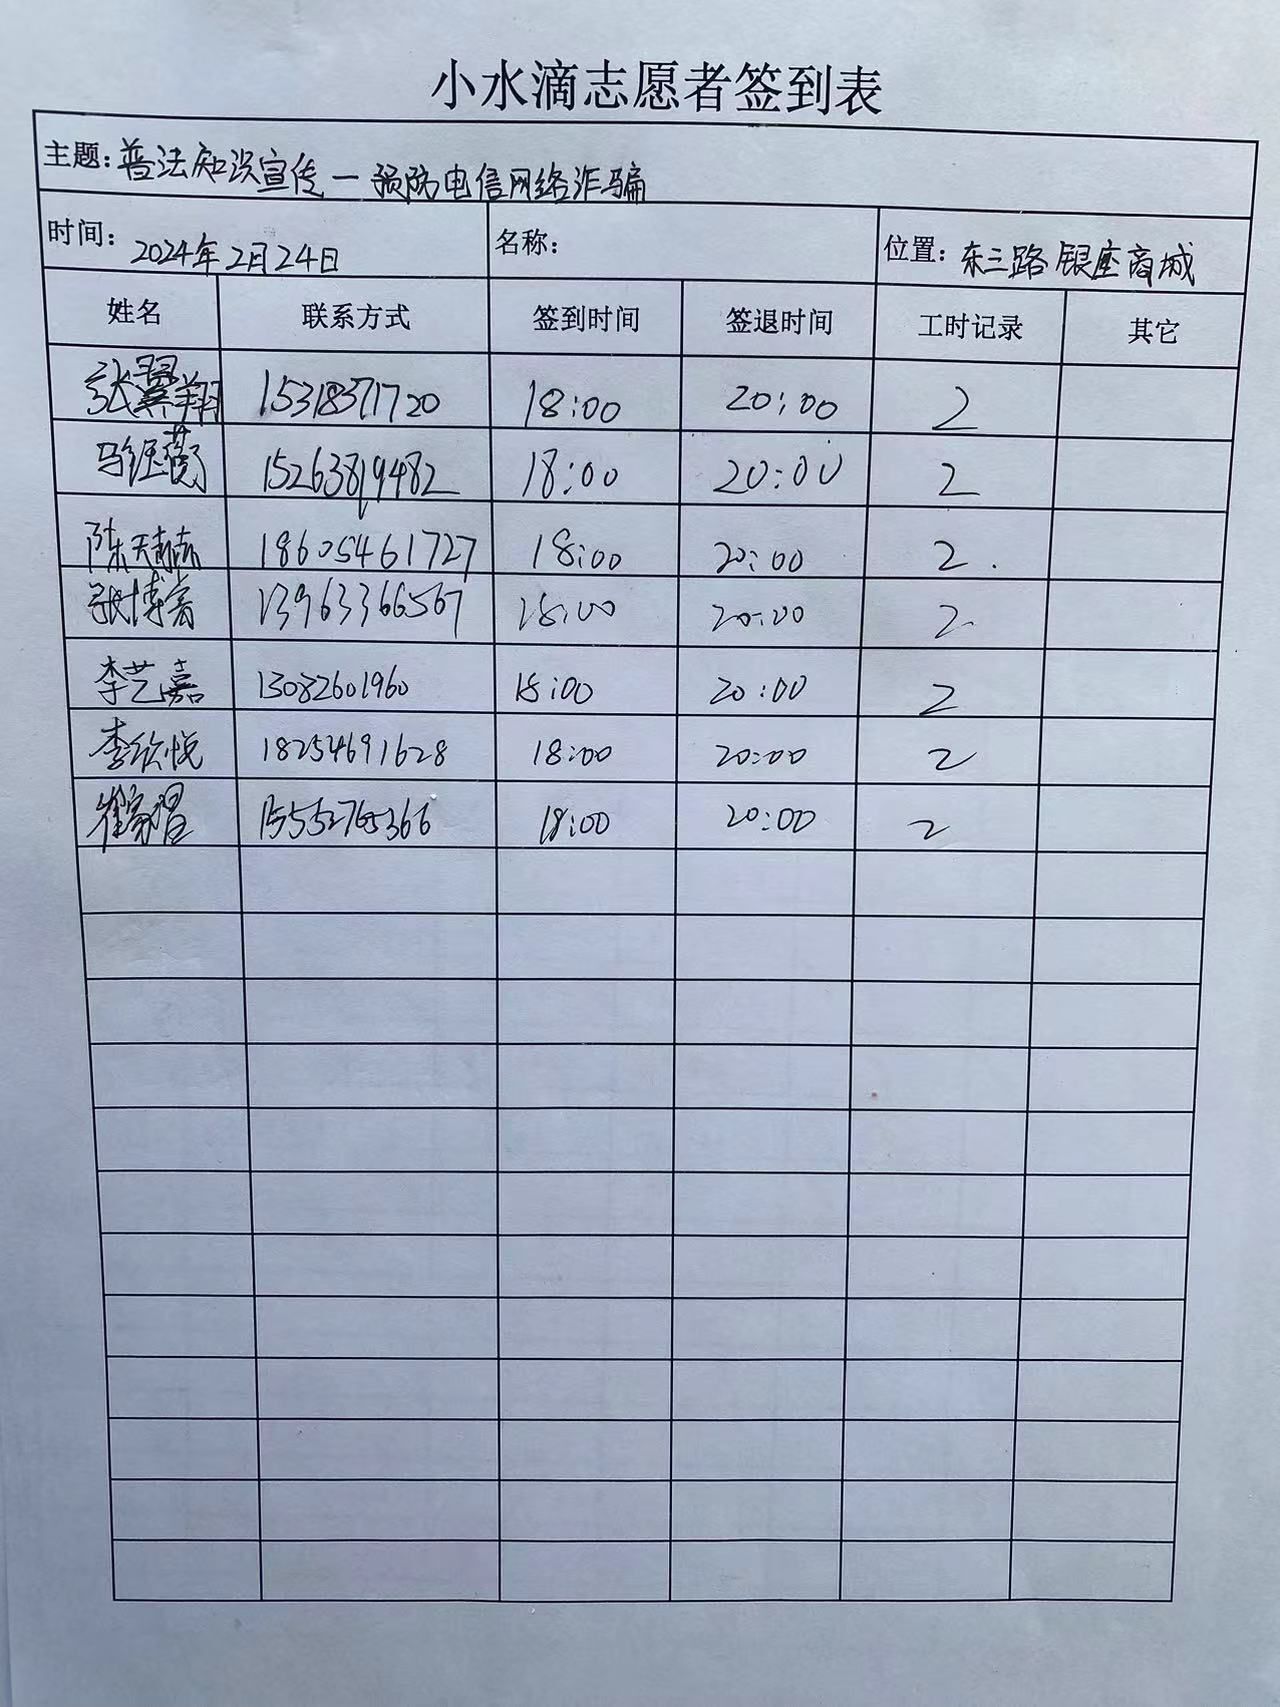 小水滴志愿者签到表
主题：普法知识宣传一预防电信网络诈骗
时间：2024年2月24日 名称： 位置：东三路银座商城
姓名 联系方式 签到时间 签退时间 工时记录 其它
张翼翔 15318371720 18:00 20:00 2
马钰蘅 15263819482 18:00 20:00 2
陈天赫 18605461727 18:00 20:00 2
张博睿 13963366567 18:00 20:00 2
李艺嘉 13082601960 18:00 20:00 2
李欣悦 18254691628 18:00 20:00 2
崔家 15552765366 18:00 20:00 2